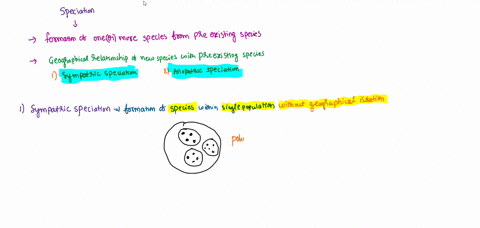 Speciation
→ formation of one(or) more species from pre existing species
→ Geographical relationship of new species with pre existing species
1) Sympatric speciation 2) Allopatric speciation
1) Sympatric speciation → formation of species within single population without geographical isolation